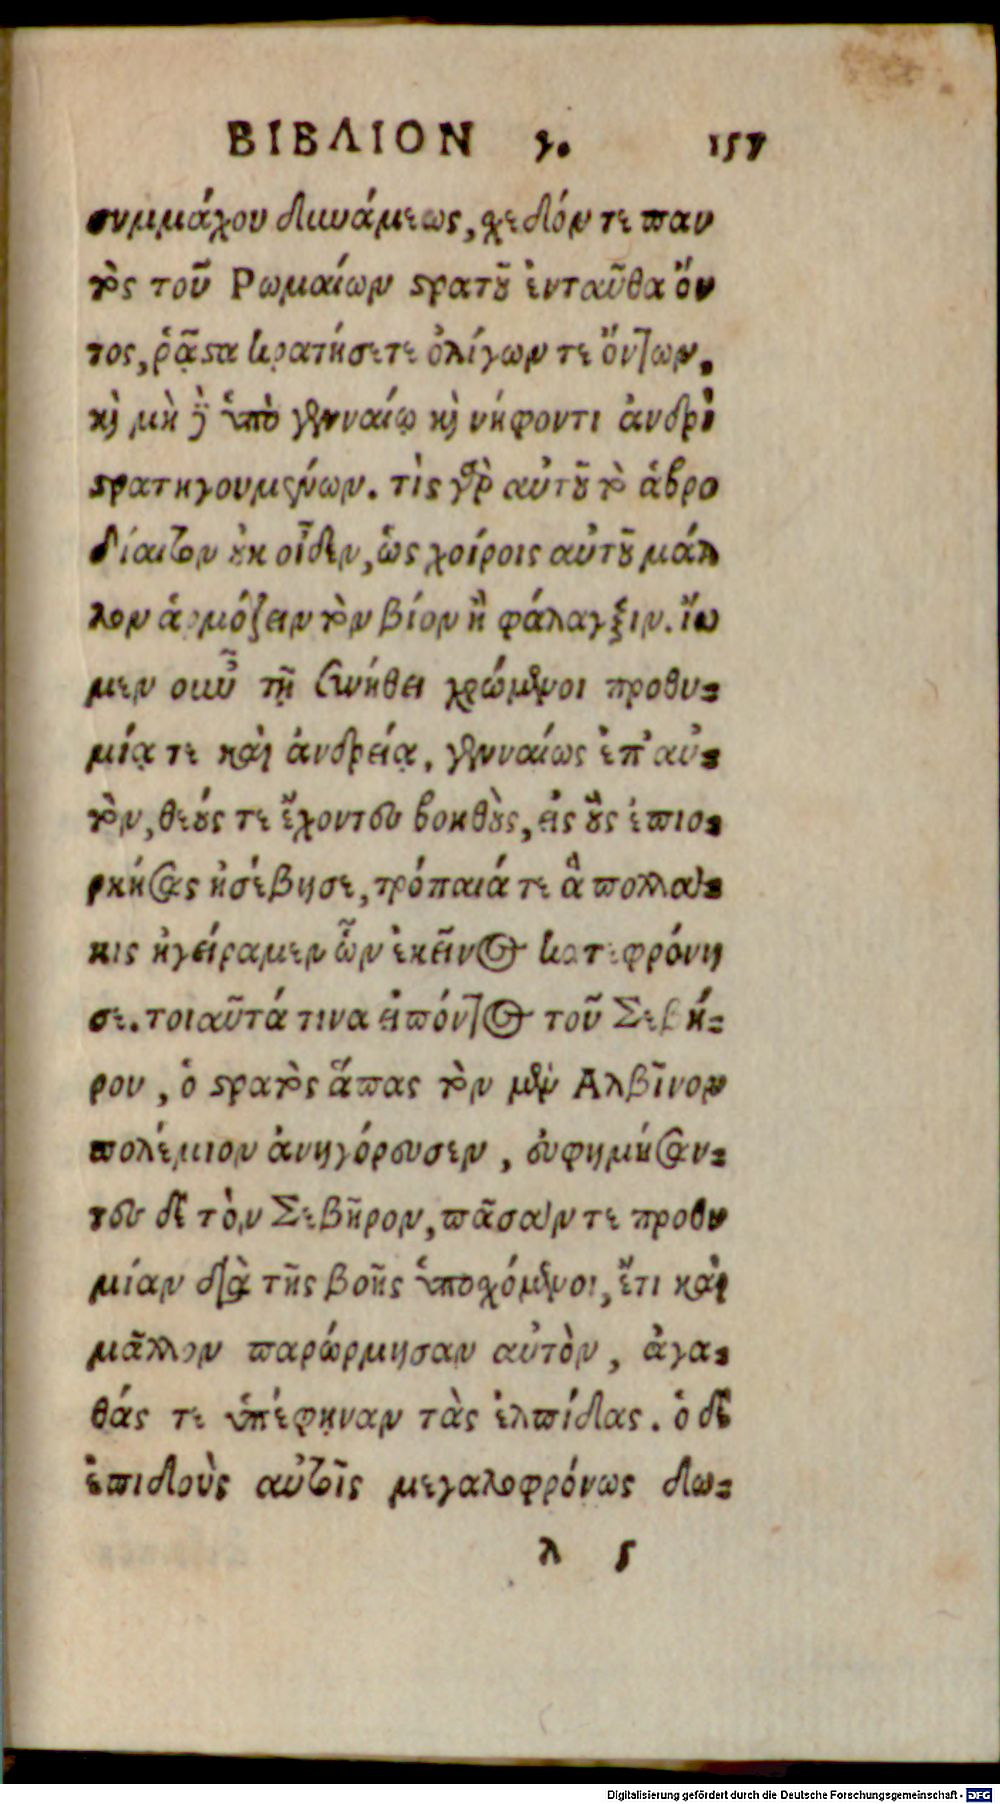 ΒΙΒΛΙΟΝ γ. 157
συμμάχου δυνάμεως, σχεδόν τε παν
τὸς τοῦ Ρωμαίων στρατοῦ ἐνταῦθα ὄν
τος, ῥᾷστα κρατήσετε ὀλίγων τε ὄντων,
καὶ μὴ ὑπὸ γενναίῳ καὶ νήφοντι ἀνδρὶ
στρατηγουμένων. τὶς γὰρ αὐτοῦ τὸ ἁβρο
δίαιτον οὐκ οἶδεν, ὡς χοίροις αὐτοῦ μᾶλ
λον ἁρμόζειν τὸν βίον ἢ φάλαγξιν. ἴω
μεν οὖν τῇ συνήθει χρώμενοι προθυ-
μίᾳ τε καὶ ἀνδρείᾳ, γενναίως ἐπ' αὐ-
τὸν, θεούς τε ἔχοντες βοηθοὺς, εἰς οὓς ἐπιορ-
κήσας ἠσέβησε, τρόπαιά τε ἃ πολλά-
κις ἠγείραμεν ὧν ἐκεῖνος κατεφρόνη
σε. τοιαῦτά τινα εἰπόντος τοῦ Σεβή-
ρου, ὁ στρατὸς ἅπας τὸν μὲν Αλβῖνον
πολέμιον ἀνηγόρευσεν, εὐφημήσαν-
τες δὲ τὸν Σεβῆρον, πᾶσάν τε προθυ
μίαν διὰ τῆς βοῆς ὑποχόμενοι, ἔτι καὶ
μᾶλλον παρώρμησαν αὐτὸν, ἀγα-
θάς τε ὑπέφηναν τὰς ἐλπίδας. ὁ δὲ
ἐπιδοὺς αὐτοῖς μεγαλοφρόνως δω-
λ 5
Digitalisierung gefördert durch die Deutsche Forschungsgemeinschaft - DFG